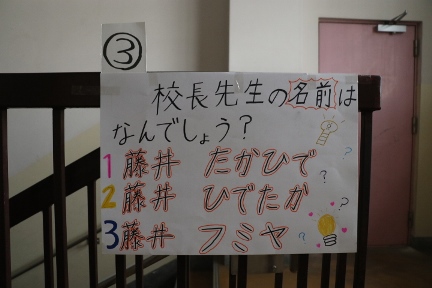 ③
校長先生の名前は
なんでしょう?
1 藤井 たかひで
2 藤井 ひでたか
3 藤井 フミヤ